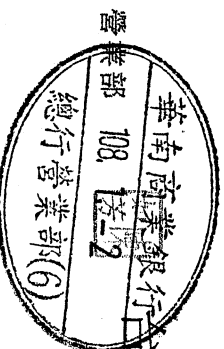 華南商業銀行
營業部 108.
總行營業部(6)